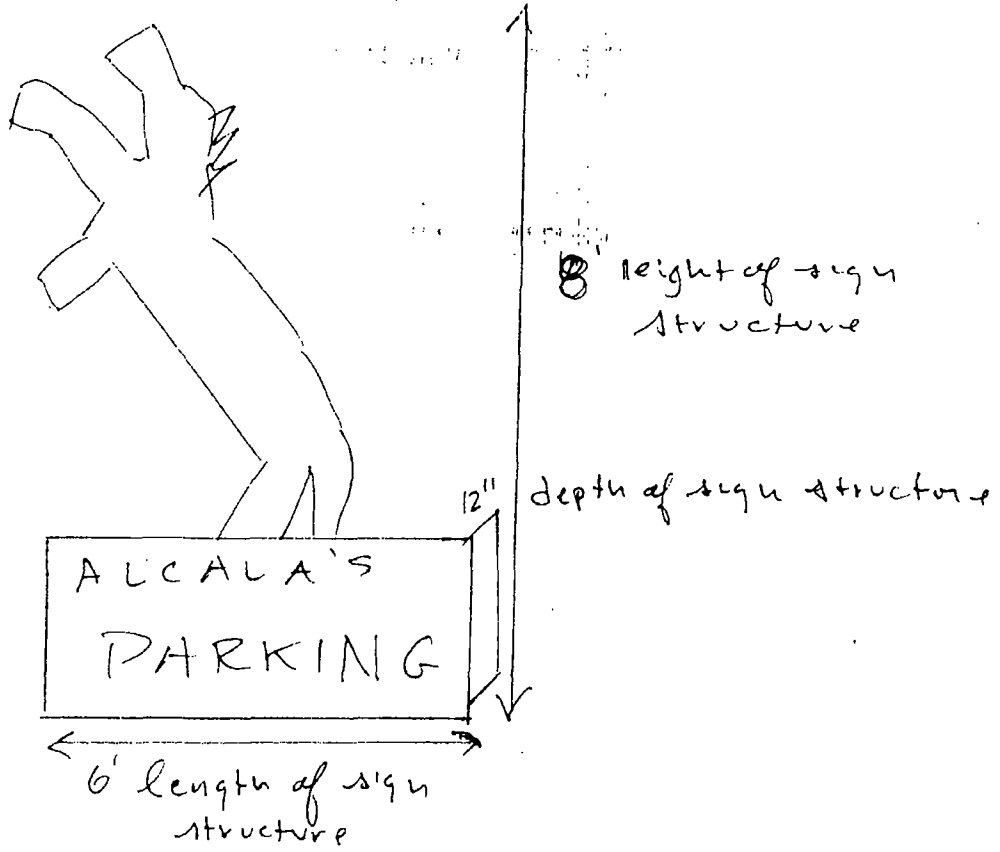 8' height of sign
structure
12" depth of sign structure
ALCALA'S
PARKING
6' length of sign
structure